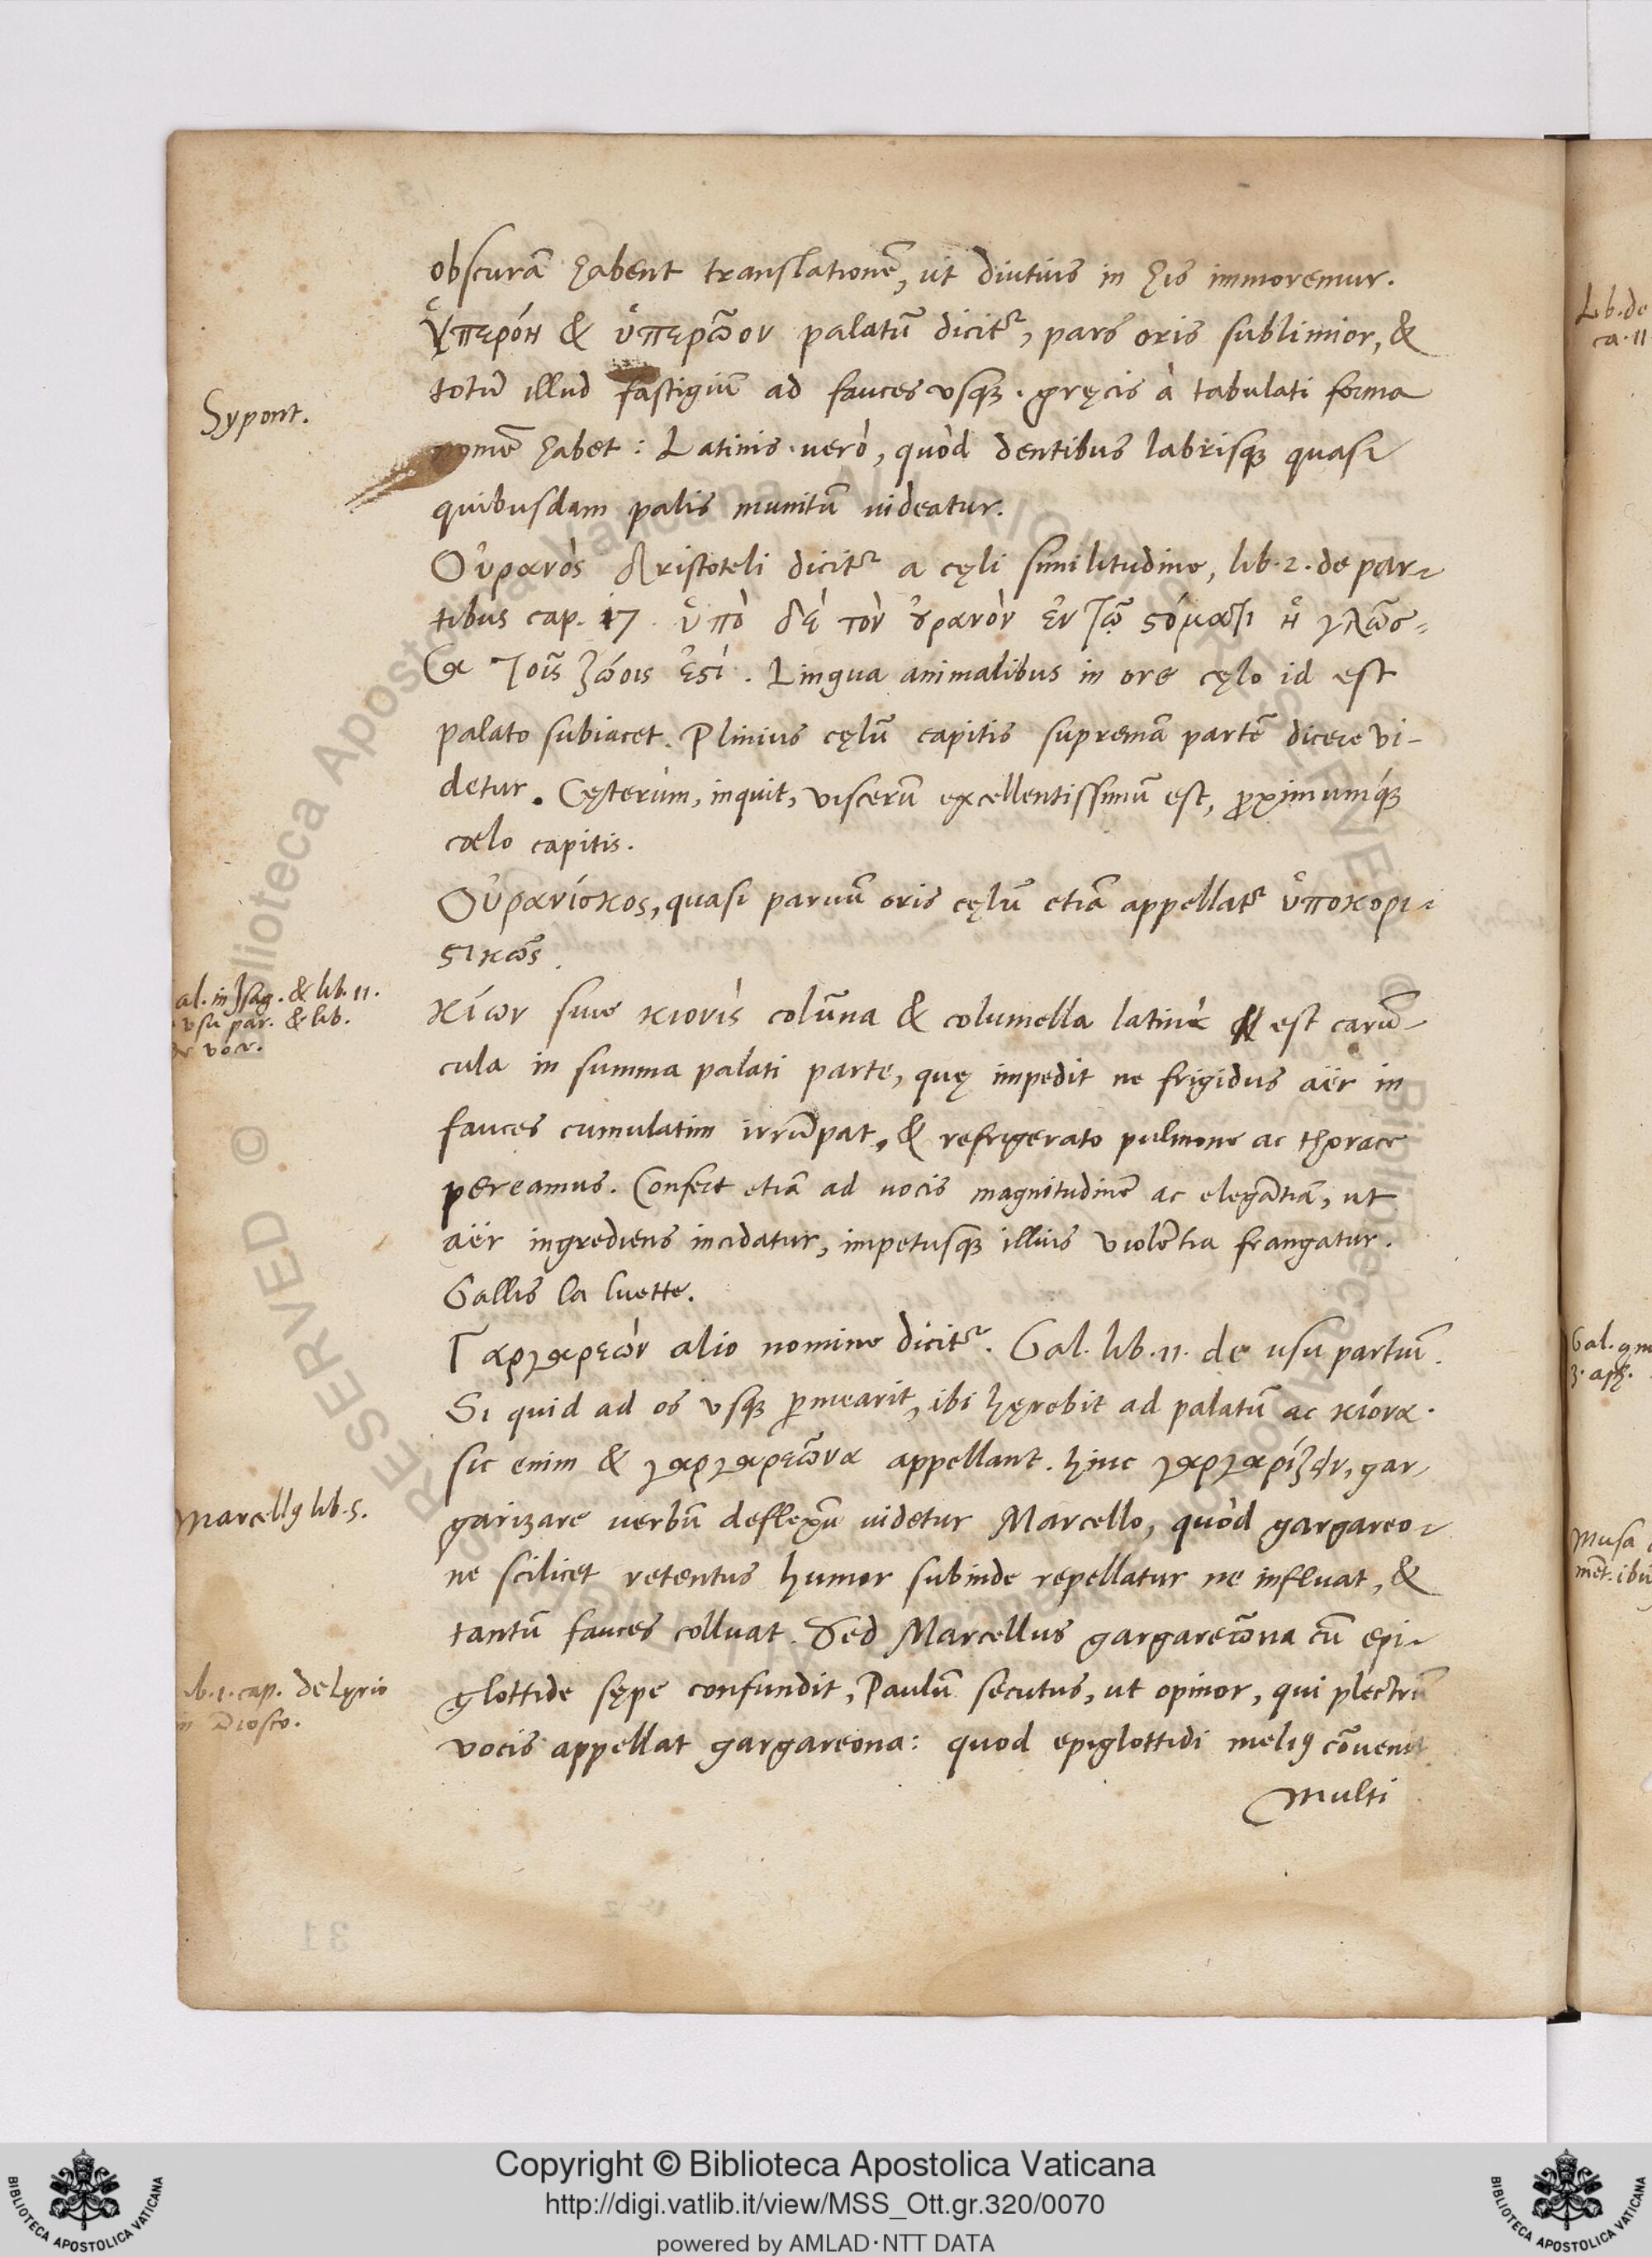 obscurã habent translationẽ, ut diutius in his immoremur.
ὑπερόη & ὑπερῶον palatũ dicit᷑, pars oris sublimior, &
totũ illud fastigiũ ad fauces usq̃ . gręcis à tabulati forma
Sypont.
nomẽ habet : Latinis uerò, quòd dentibus labrisq̃ quasi
quibusdam palis munitũ uideatur.
Οὐρανὸς Aristoteli dicit᷑ a cęli similitudine, lib. 2. de par-
tibus cap. 17. ὑπὸ δὲ τὸν ȣ̓ρανὸν ἐν τῷ ϛόματι ἡ γλῶσ-
σα τοῖς ζώοις ἐϛὶ . Lingua animalibus in ore cęlo id est
palato subiacet. Plinius cęlũ capitis supremã partẽ dicere vi-
detur. Cęterùm, inquit, viscerũ excellentissimũ est, p̃ximumq́;
cælo capitis.
Οὐρανίσκος, quasi paruũ oris cęlũ etiã appellat᷑ ὑποκορι-
ϛικῶς.
al. in Isag. & lib. 11.
usu par. & lib.
κίων siue κιονὶς colũna & columella latinè est carũ-
cula in summa palati parte, quę impedit ne frigidus aër in
fauces cumulatim irrũpat, & refrigerato pulmone ac thorace
pereamus. Confert etiã ad uocis magnitudinẽ ac elegãtiã, ut
aër ingrediens incidatur, impetusq̃ illius violẽtia frangatur.
Gallis la luette.
Γαργαρεὼν alio nomine dicit᷑. Gal. lib. 11. de usu partiũ.
Si quid ad os usq̃ p̃mearit, ibi hęrebit ad palatũ ac κιόνα.
sic enim & γαργαρεῶνα appellant. hinc γαργαρίζειν, gar-
Marcellꝰ lib. 5.
garizare uerbũ deflexũ uidetur Marcello, quòd gargareo-
ne scilicet retentus humor subinde repellatur ne influat, &
tantũ fauces colluat. Sed Marcellus gargareωna cũ epi-
lb. 1. cap. de Lyrio
in Diosco.
glottide sępe confundit, Paulũ secutus, ut opinor, qui plectrũ
vocis appellat gargareona: quod epiglottidi meliꝰ cõuenit
multi
Lib. de
ca. 11
Gal.
3. aph.
Musa
Copyright © Biblioteca Apostolica Vaticana
http://digi.vatlib.it/view/MSS_Ott.gr.320/0070
powered by AMLAD·NTT DATA
BIBLIOTECA APOSTOLICA VATICANA
BIBLIOTECA APOSTOLICA VATICANA